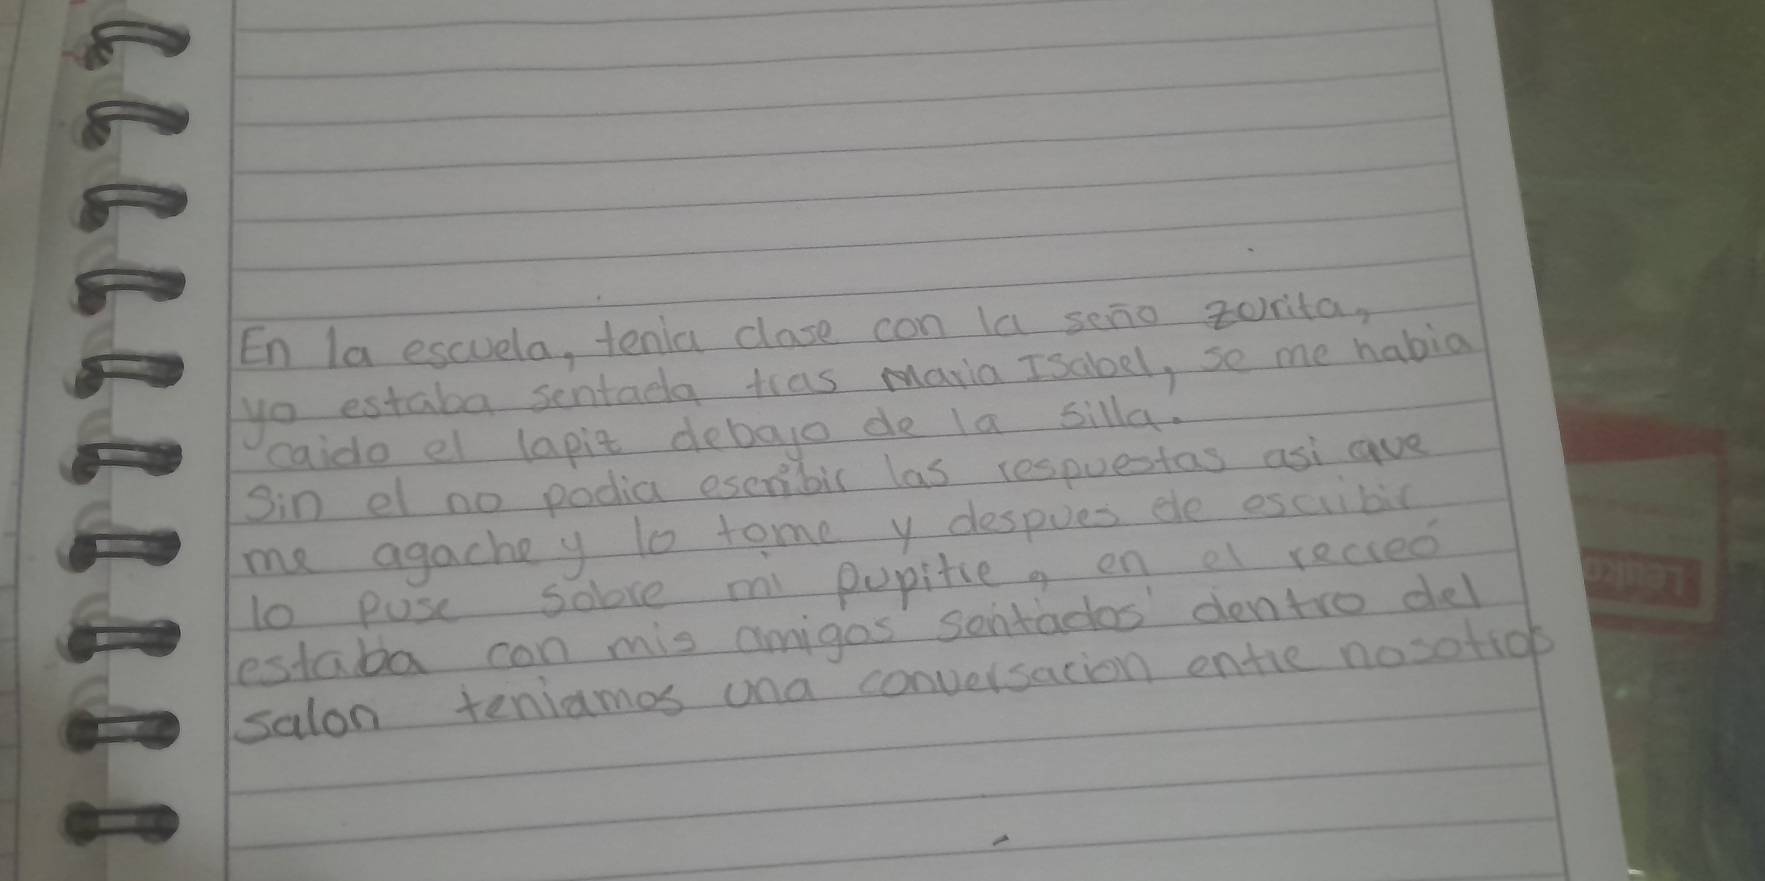 En la escuela, tenia clase con la seño zorita,
yo estaba sentada tras maria Isabel, se me habia
caido el lapiz debajo de la silla.
Sin el no podia escribir las respuestas asi que
me agache y lo tome y despues de escribir
lo puse sobre mi pupitre, en el recreo
estaba con mis amigos sentados dentro del
salon teniamos una conversacion entre nosotros